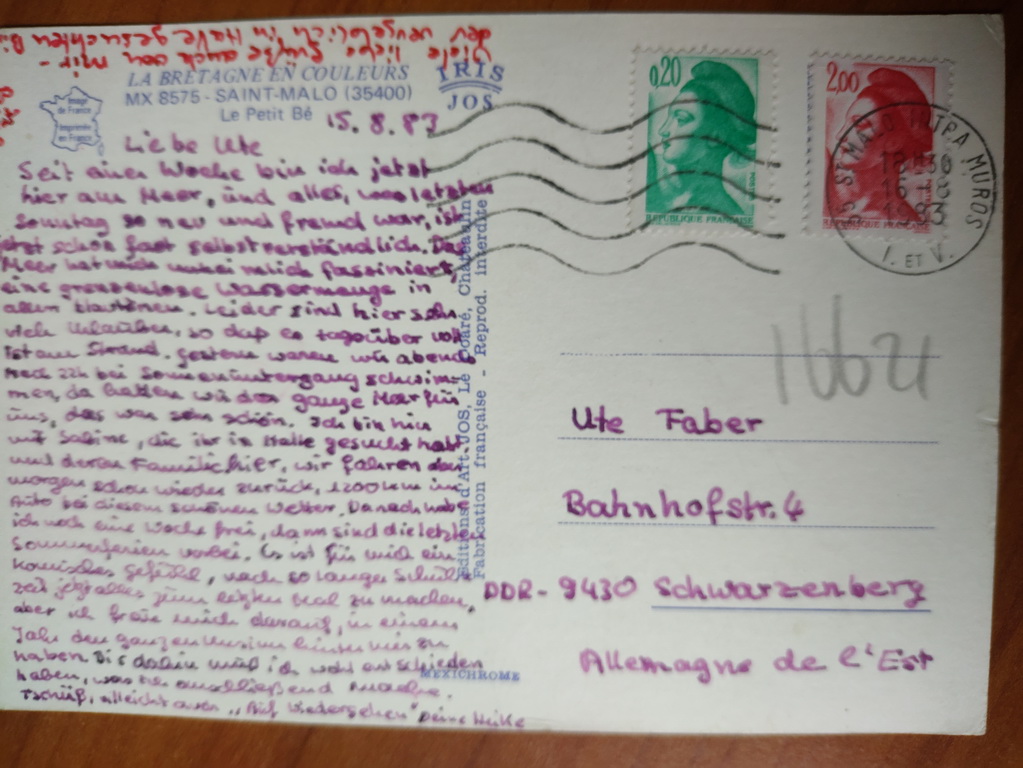 Viele liebe Grüße auch von mir -
der vergeblich in Halle gesuchten
LA BRETAGNE EN COULEURS
MX 8575 - SAINT-MALO (35400)
Le Petit Bé
IRIS
JOS
Image
de France
Imprimée
en France
15.8.83
Liebe Ute
Seit einer Woche bin ich jetzt
hier am Meer, und alles, was letzten
Sonntag so neu und fremd war, ist
jetzt schon fast selbstverständlich. Das
Meer hat mich unheimlich fasziniert,
eine grenzenlose Wassermenge in
allen Blautönen. Leider sind hier sehr
viele Urlauber, so daß es tagsüber voll
ist am Strand. Gestern waren wir abends
nach 22h bei Sonnenuntergang schwim-
men, da hatten wir das ganze Meer für
uns, das war sehr schön. Ich bin hier
mit Sabine, die ihr in Halle gesucht habt
und deren Familie hier. Wir fahren
morgen schon wieder zurück, 1200 km im
Auto bei diesem schönen Wetter. Danach habe
ich noch eine Woche frei, dann sind die letzten
Sommerferien vorbei. Es ist für mich ein
komisches Gefühl, nach so langer Schul-
zeit jetzt alles zum letzten Mal zu machen,
aber ich freue mich darauf, in einem
Jahr den ganzen hinter mir zu
haben. Bis dahin muß ich wohl entschieden
haben, was ich anschließend mache.
Tschüß, vielleicht auch "Auf Wiedersehen" Deine Heike
Editions d'Art JOS, Le Doaré, Châteaulin
Fabrication française - Reprod. interdite
MEXICHROME
0,20
POSTES
REPUBLIQUE FRANÇAISE
2,00
REPUBLIQUE FRANÇAISE
ST MALO INTRA MUROS
I. ET V.
Ute Faber
Bahnhofstr. 4
DDR - 9430 Schwarzenberg
Allemagne de l'Est